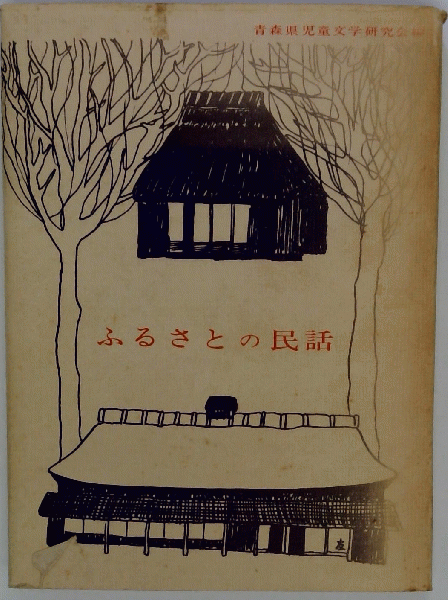 青森県児童文学研究会編
ふるさとの民話